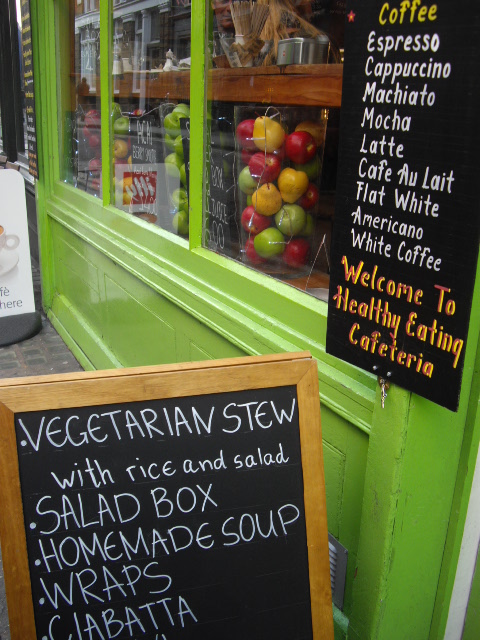 Coffee
Espresso
Cappuccino
Machiato
Mocha
Latte
Cafe Au Lait
Flat White
Americano
White Coffee
Welcome To
Healthy Eating
Cafeteria
·VEGETARIAN STEW
with rice and salad
·SALAD BOX
·HOMEMADE SOUP
·WRAPS
·CIABATTA
fè
here